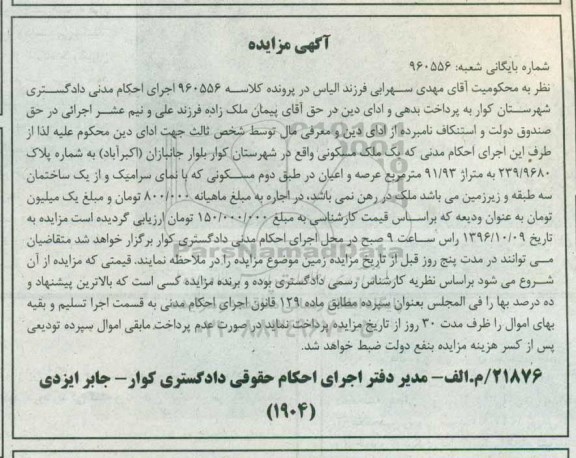 آگهی مزایده
شماره بایگانی شعبه: ۹۶۰۵۵۶
نظر به محکومیت آقای مهدی سهرابی فرزند الیاس در پرونده کلاسه ۹۶۰۵۵۶ اجرای احکام مدنی دادگستری
شهرستان کوار به پرداخت بدهی و ادای دین در حق آقای پیمان ملک زاده فرزند علی و نیم عشر اجرائی در حق
صندوق دولت و استنکاف نامبرده از ادای دین و معرفی مال توسط شخص ثالث جهت ادای دین محکوم علیه لذا از
طرف این اجرای احکام مدنی که یک ملک مسکونی واقع در شهرستان کوار بلوار جانبازان (اکبرآباد) به شماره پلاک
۲۳۹/۹۶۸۰ به متراژ ۹۱/۹۳ مترمربع عرصه و اعیان در طبق دوم مسکونی که با نمای سرامیک و از یک ساختمان
سه طبقه و زیرزمین می باشد ملک در رهن نمی باشد، در اجاره به مبلغ ماهیانه ۸۰۰/۰۰۰ تومان و مبلغ یک میلیون
تومان به عنوان ودیعه که براساس قیمت کارشناسی به مبلغ ۱۵۰/۰۰۰/۰۰۰ تومان ارزیابی گردیده است مزایده به
تاریخ ۱۳۹۶/۱۰/۰۹ راس ساعت ۹ صبح در محل اجرای احکام مدنی دادگستری کوار برگزار خواهد شد متقاضیان
می توانند در مدت پنج روز قبل از تاریخ مزایده زمین موضوع مزایده را در ملاحظه نمایند. قیمتی که مزایده از آن
شروع می شود براساس نظریه کارشناس رسمی دادگستری بوده و برنده مزایده کسی است که بالاترین پیشنهاد و
ده درصد بها را فی المجلس بعنوان سپرده مطابق ماده ۱۲۹ قانون اجرای احکام مدنی به قسمت اجرا تسلیم و بقیه
بهای اموال را ظرف مدت ۳۰ روز از تاریخ مزایده پرداخت نماید در صورت عدم پرداخت مابقی اموال سپرده تودیعی
پس از کسر هزینه مزایده بنفع دولت ضبط خواهد شد.
۲۱۸۷۶/م.الف- مدیر دفتر اجرای احکام حقوقی دادگستری کوار- جابر ایزدی
(۱۹۰۴)